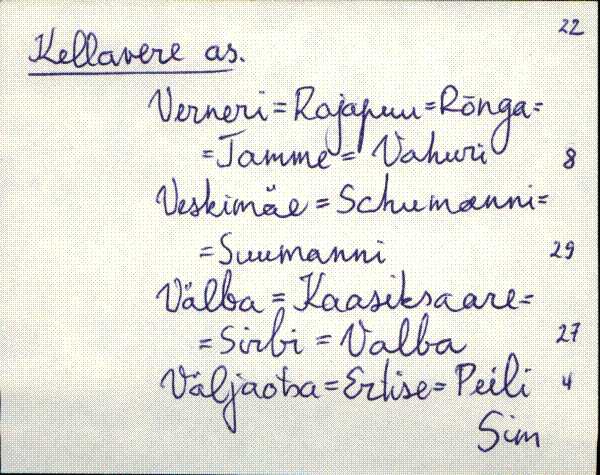 22
Kellavere as.
Verneri = Rajapuu = Rõnga =
= Tamme = Vahuri 8
Veskimäe = Schumanni =
= Suumanni 29
Välba = Kaasiksaare =
= Sirbi = Valba 27
Väljaotsa = Ertise = Peili 4
Sim